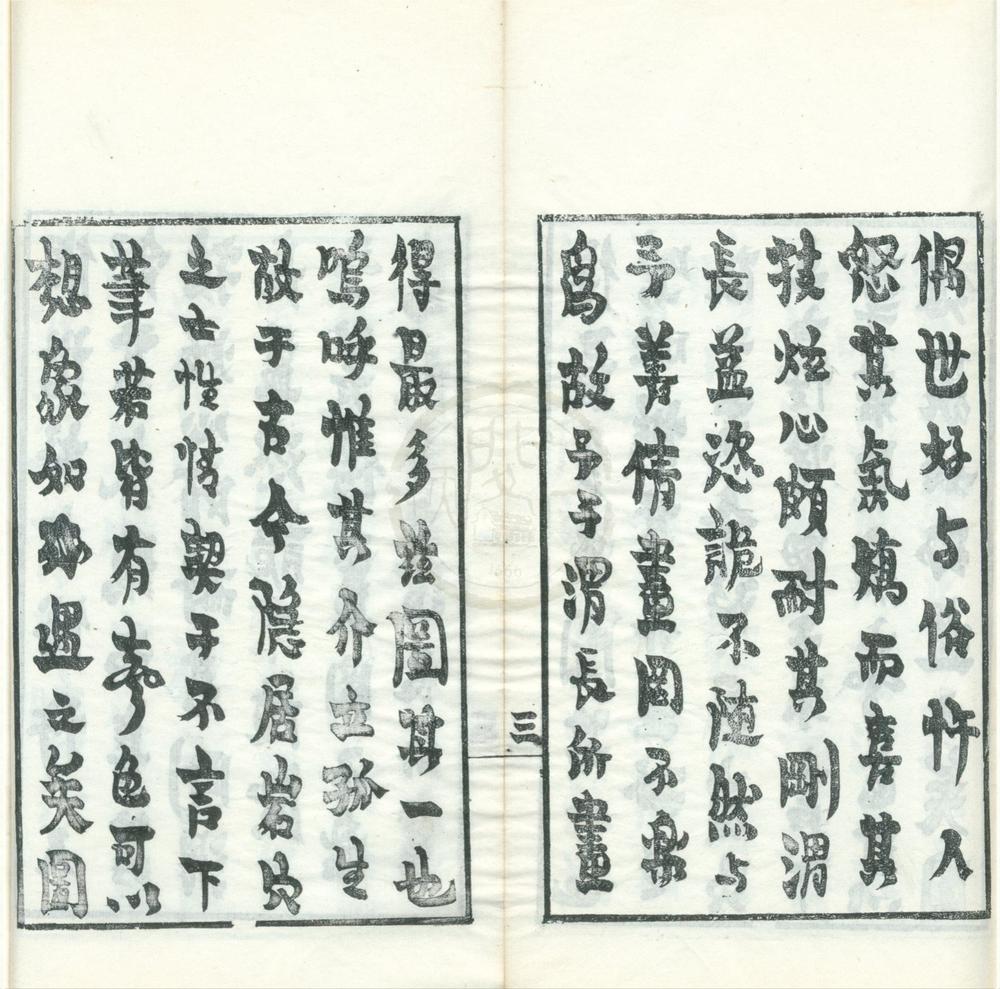 偶世好与俗忤人
怒其氣矯而喜其
技炫心頗耐其剛渭
長益恣詭不随然与
予善倩畫図不樂
為故予于渭長所畫
三
得最多茲圖其一也
嗚呼惟其介立孤生
故于古今隱居岩穴
之士性情契于不言下
筆若皆有声色可以
想象如或遇之矣圖